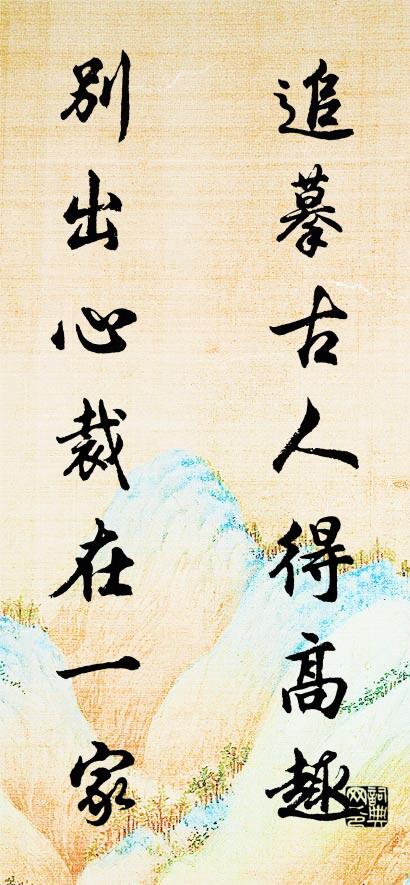 追摹古人得高趣
别出心裁在一家
詞典網